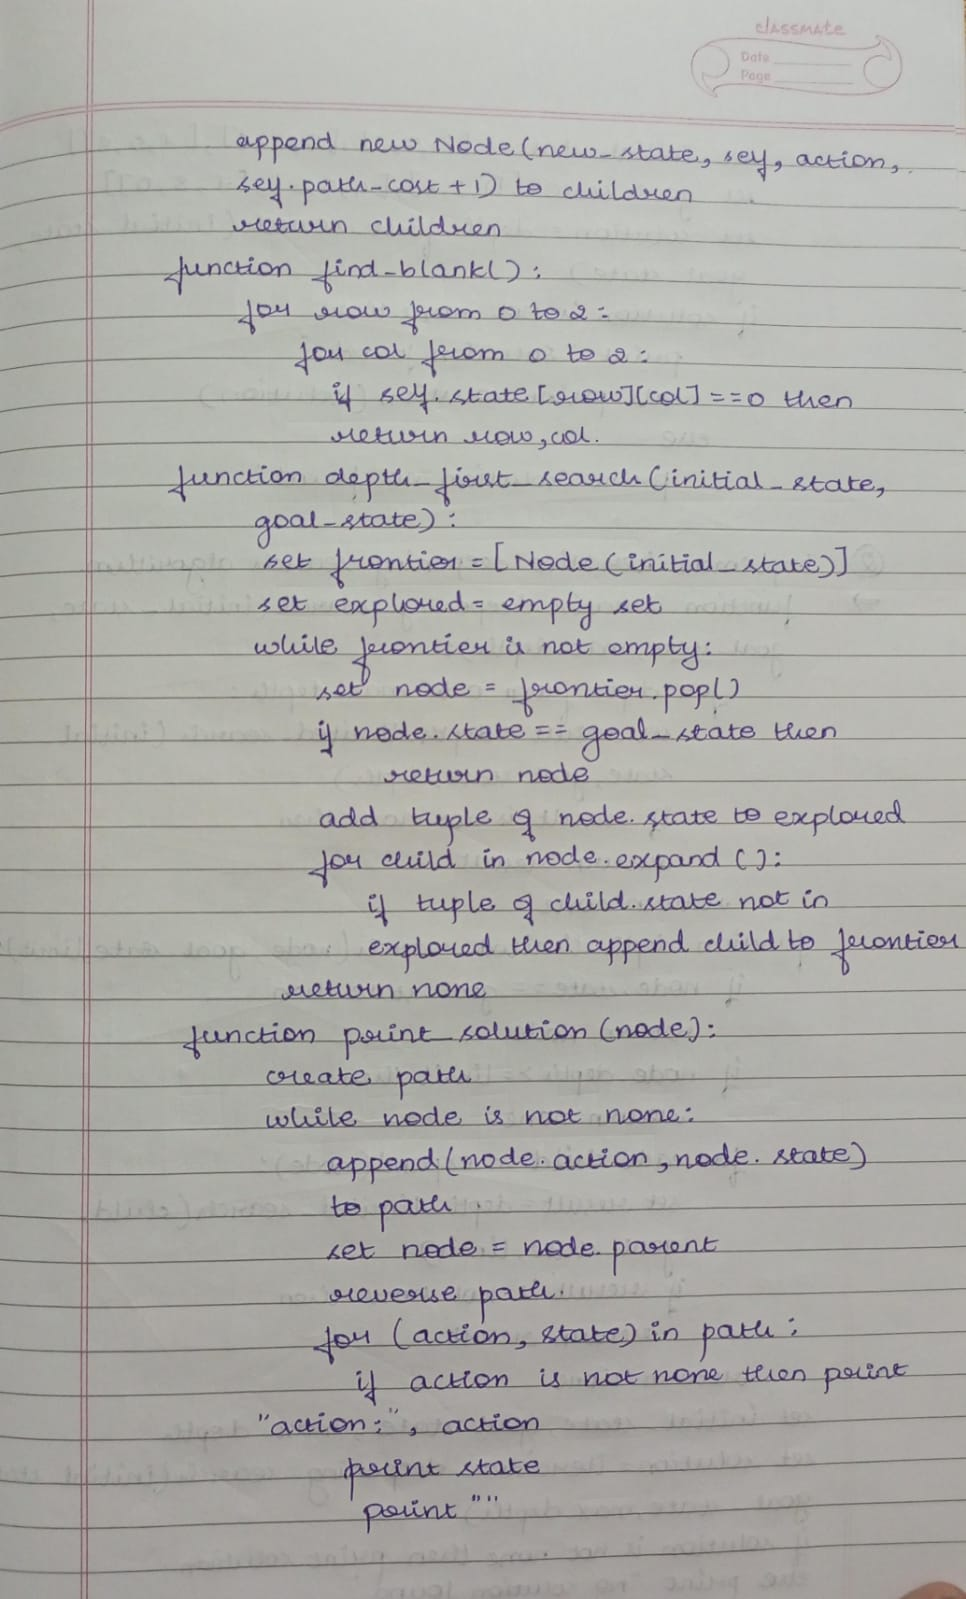 classmate
Date
Page
append new Node(new_state, self, action,
self.path_cost+1) to children
return children
function find_blank():
for row from 0 to 2:
for col from 0 to 2:
if self.state[row][col]==0 then
return row,col.
function depth_first_search(initial_state,
goal_state):
set frontier=[Node(initial_state)]
set explored= empty set
while frontier is not empty:
set node = frontier.pop()
if node.state == goal_state then
return node
add tuple of node.state to explored
for child in node.expand():
if tuple of child.state not in
explored then append child to frontier
return none
function print_solution(node):
create path
while node is not none:
append(node.action,node.state)
to path
set node = node.parent
reverse path.
for (action, state) in path:
if action is not none then print
"action:", action
print state
print ""